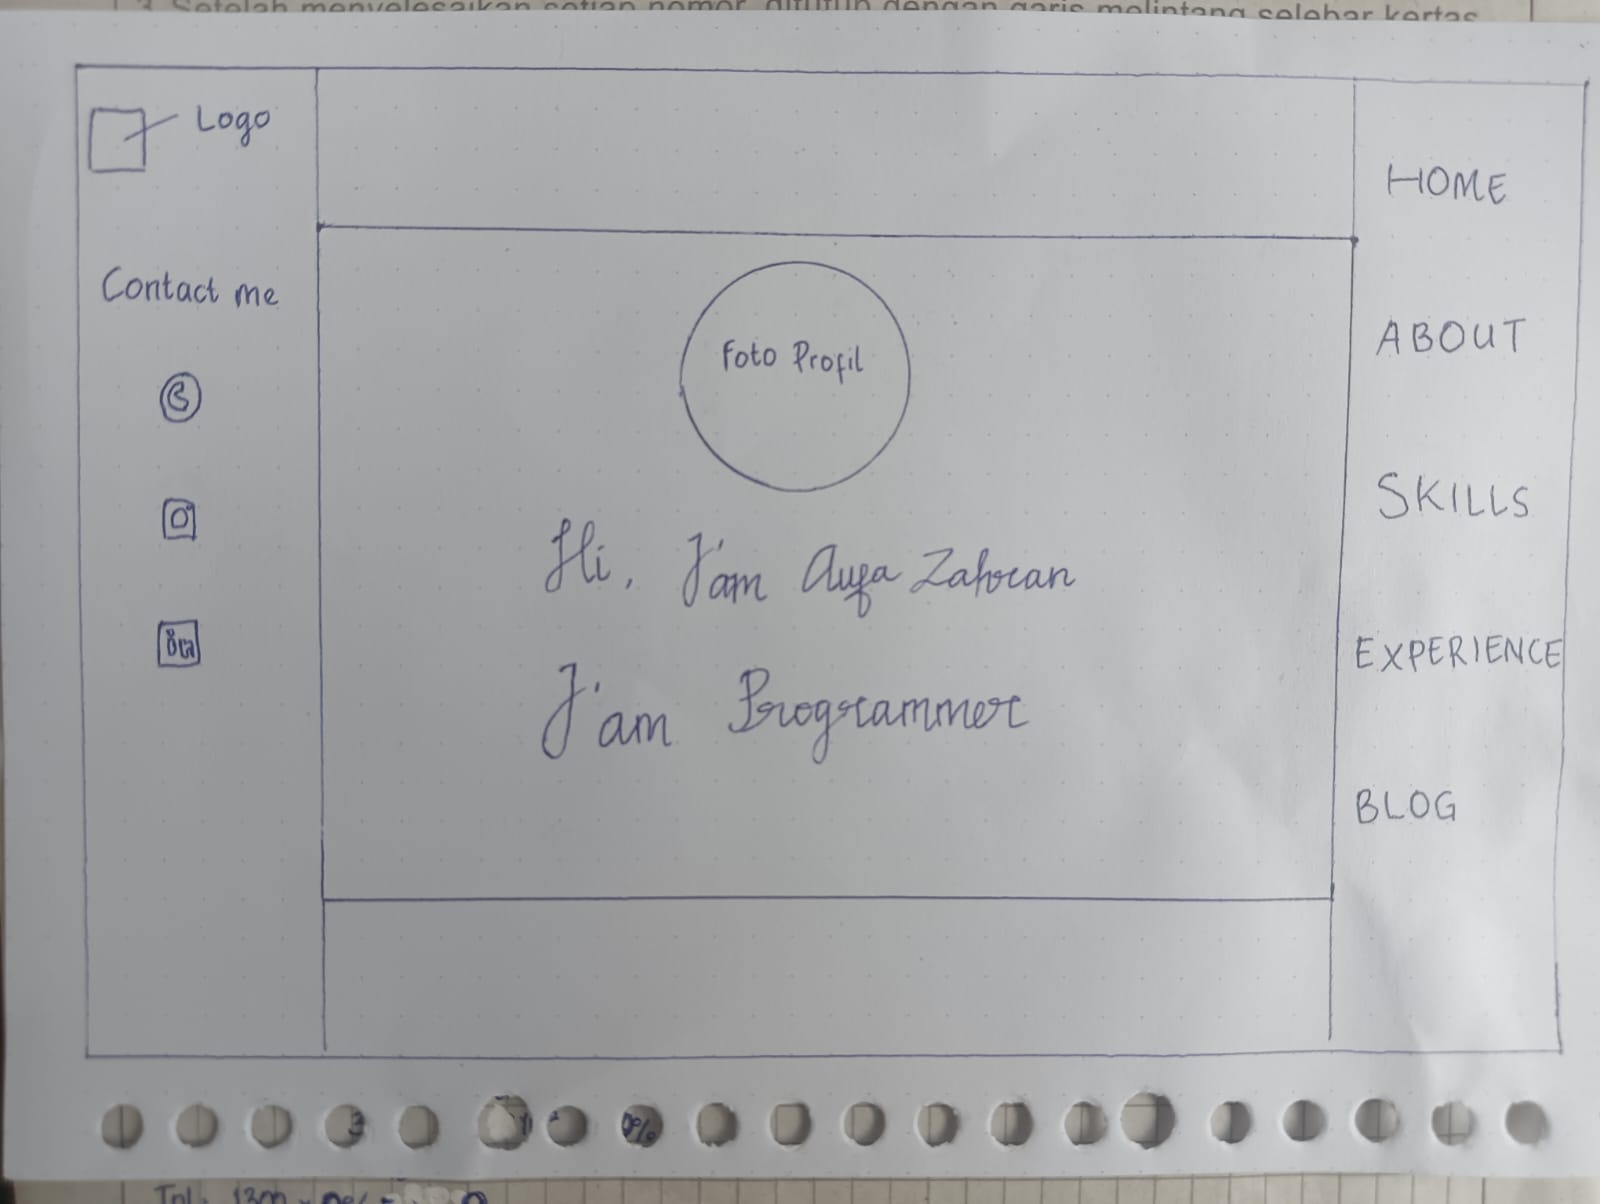 3. Setelah menyelesaikan setiap nomor, ditutup dengan garis melintang selebar kertas
Logo
Contact me
Foto Profil
Hi, I'am Aufa Zahran
I'am Programmer
HOME
ABOUT
SKILLS
EXPERIENCE
BLOG